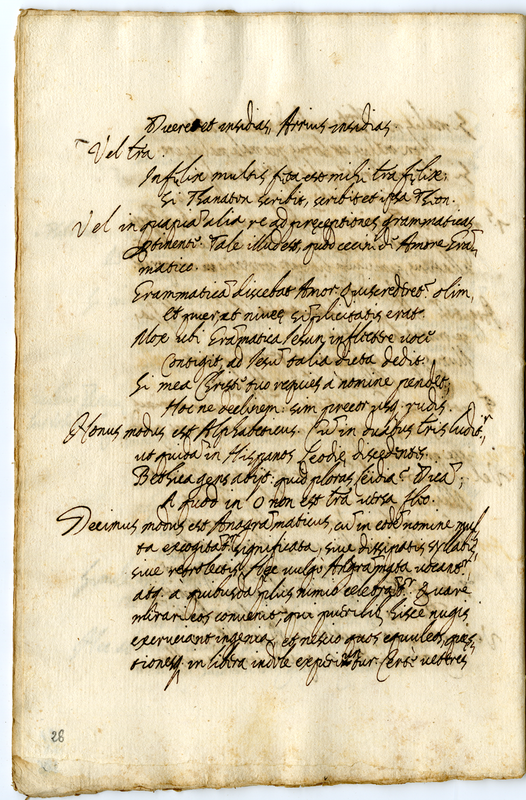 Diceret et insidias, Arrius insidias
Vel tra
Infelix multis fita est mihi tra felix:
Si Thanaton scribit, scribit et ipsa Theon.
Vel in quapiã alia re ad præceptiones grammaticas
ptinenti. Tale illud est, quod cecini dẽ Amore Grã
matico.
Grammaticã discebat Amor. Quis crederet? olim,
Et puer et niveę simplicitatis erat.
Mox ubi Grãmatica Iesum inflectere voce
Contigit, ad Iesum talia dicta dedit.
Si mea Christe tuo requies a nomine pendet,
Hoc ne declinem: sim precor usq. rudis.
Nonus modus est Alphabeticus. Cũ in duabus tris luditr,
ut quidã in Hispanos Leodię discedentis.
Bethica gens abijt: quid ploras Leidia? Dicã;
A quod in O non est tra versa
Decimus modus est Anagrãmaticus, cũ in eodẽ nomine mul
ta excogitatr significata, sive dissipatis syllabis,
sive retrolectis. Hæc vulgo Anagrãmata vocantr,
atq. a quibusdã plus nimio celebrãtr. Quare
mirari eos convenit, qui puerilibus hisce nugis
excruciant ingenia, et nescio quos equuleos, quæs
tionesq. in libera indole experiuntur. Certe vestres
26